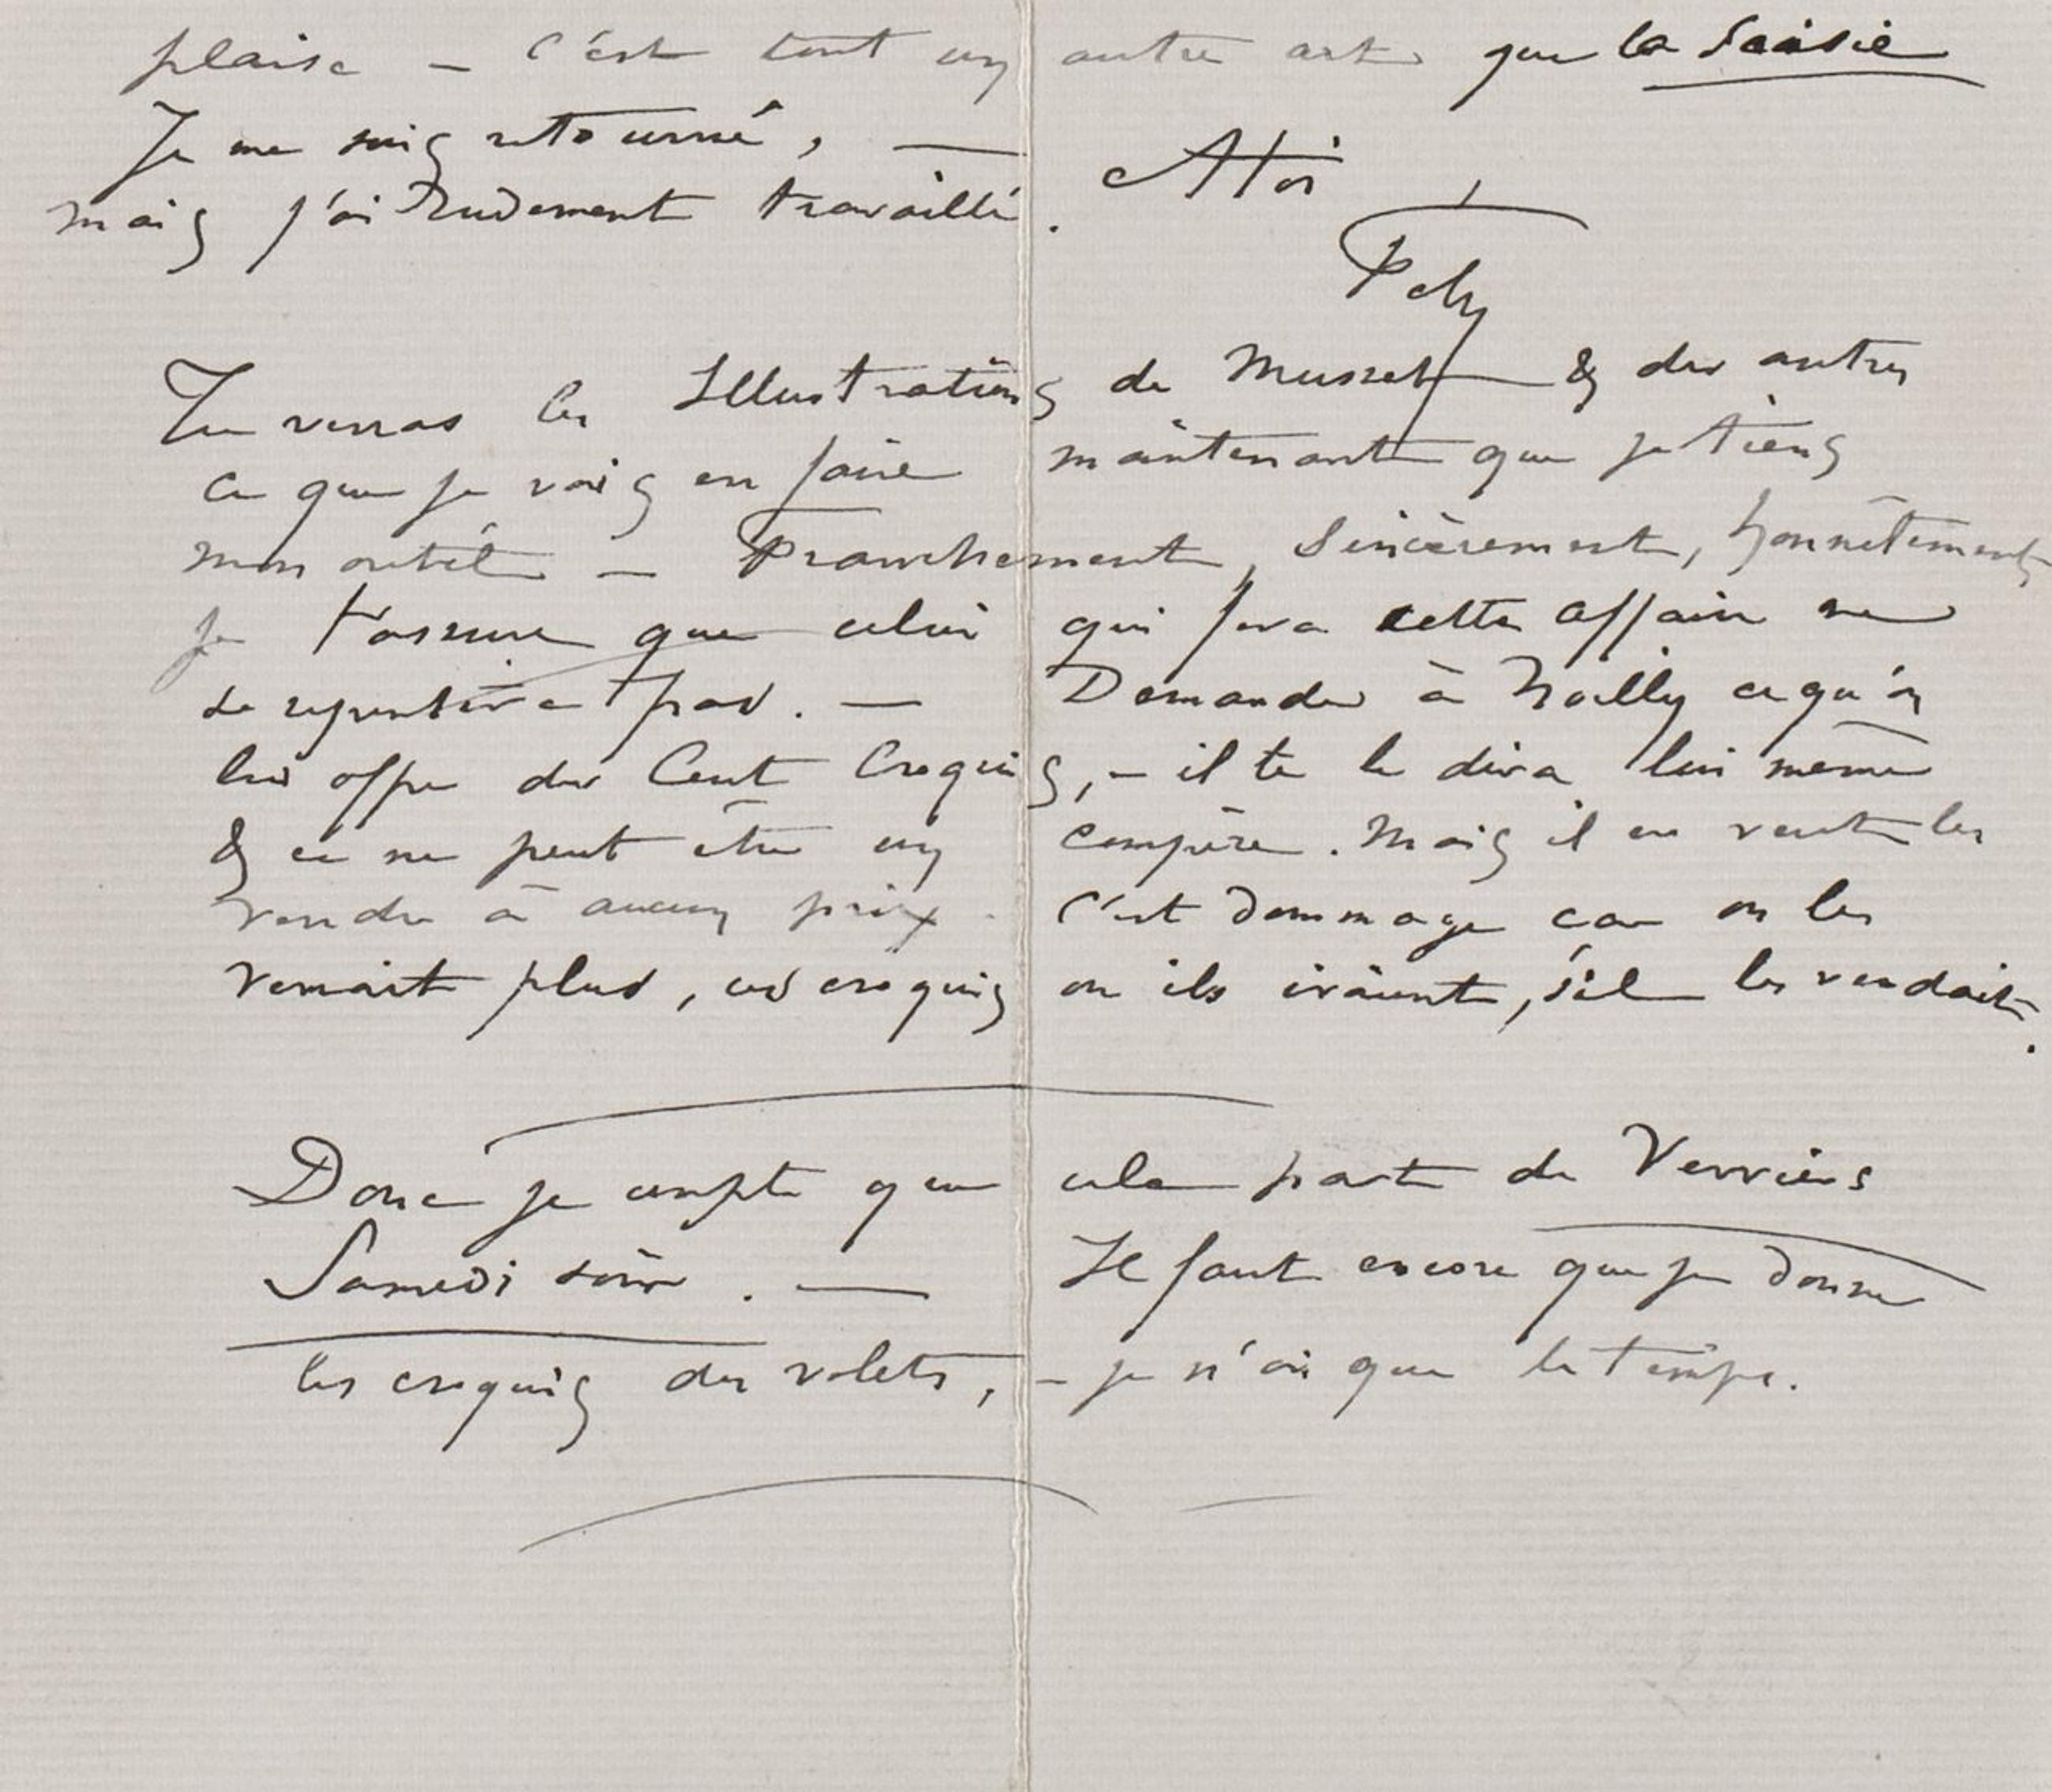 plaise — c'est tout un autre art que la Saisie
Je me suis retourné, —
mais j'ai rudement travaillé.
A toi
Fély
Tu verras les Illustrations de Musset & des autres
ce que je vais en faire maintenant que je tiens
mon outil — Franchement, sincèrement, honnêtement,
je t'assure que celui qui fera cette affaire ne
se repentira pas. — Demande à Noilly ce qu'on
lui offre des Cent Croquis, — il te le dira lui même
& ce ne peut être un compère. Mais il en veut les
vendre à aucun prix. C'est dommage car on les
verrait plus, ces croquis où ils iraient, s'il les vendait.
Donc je compte que cela part de Verviers
Samedi soir. — Il faut encore que je donne
les croquis des volets, — je n'ai que le temps.